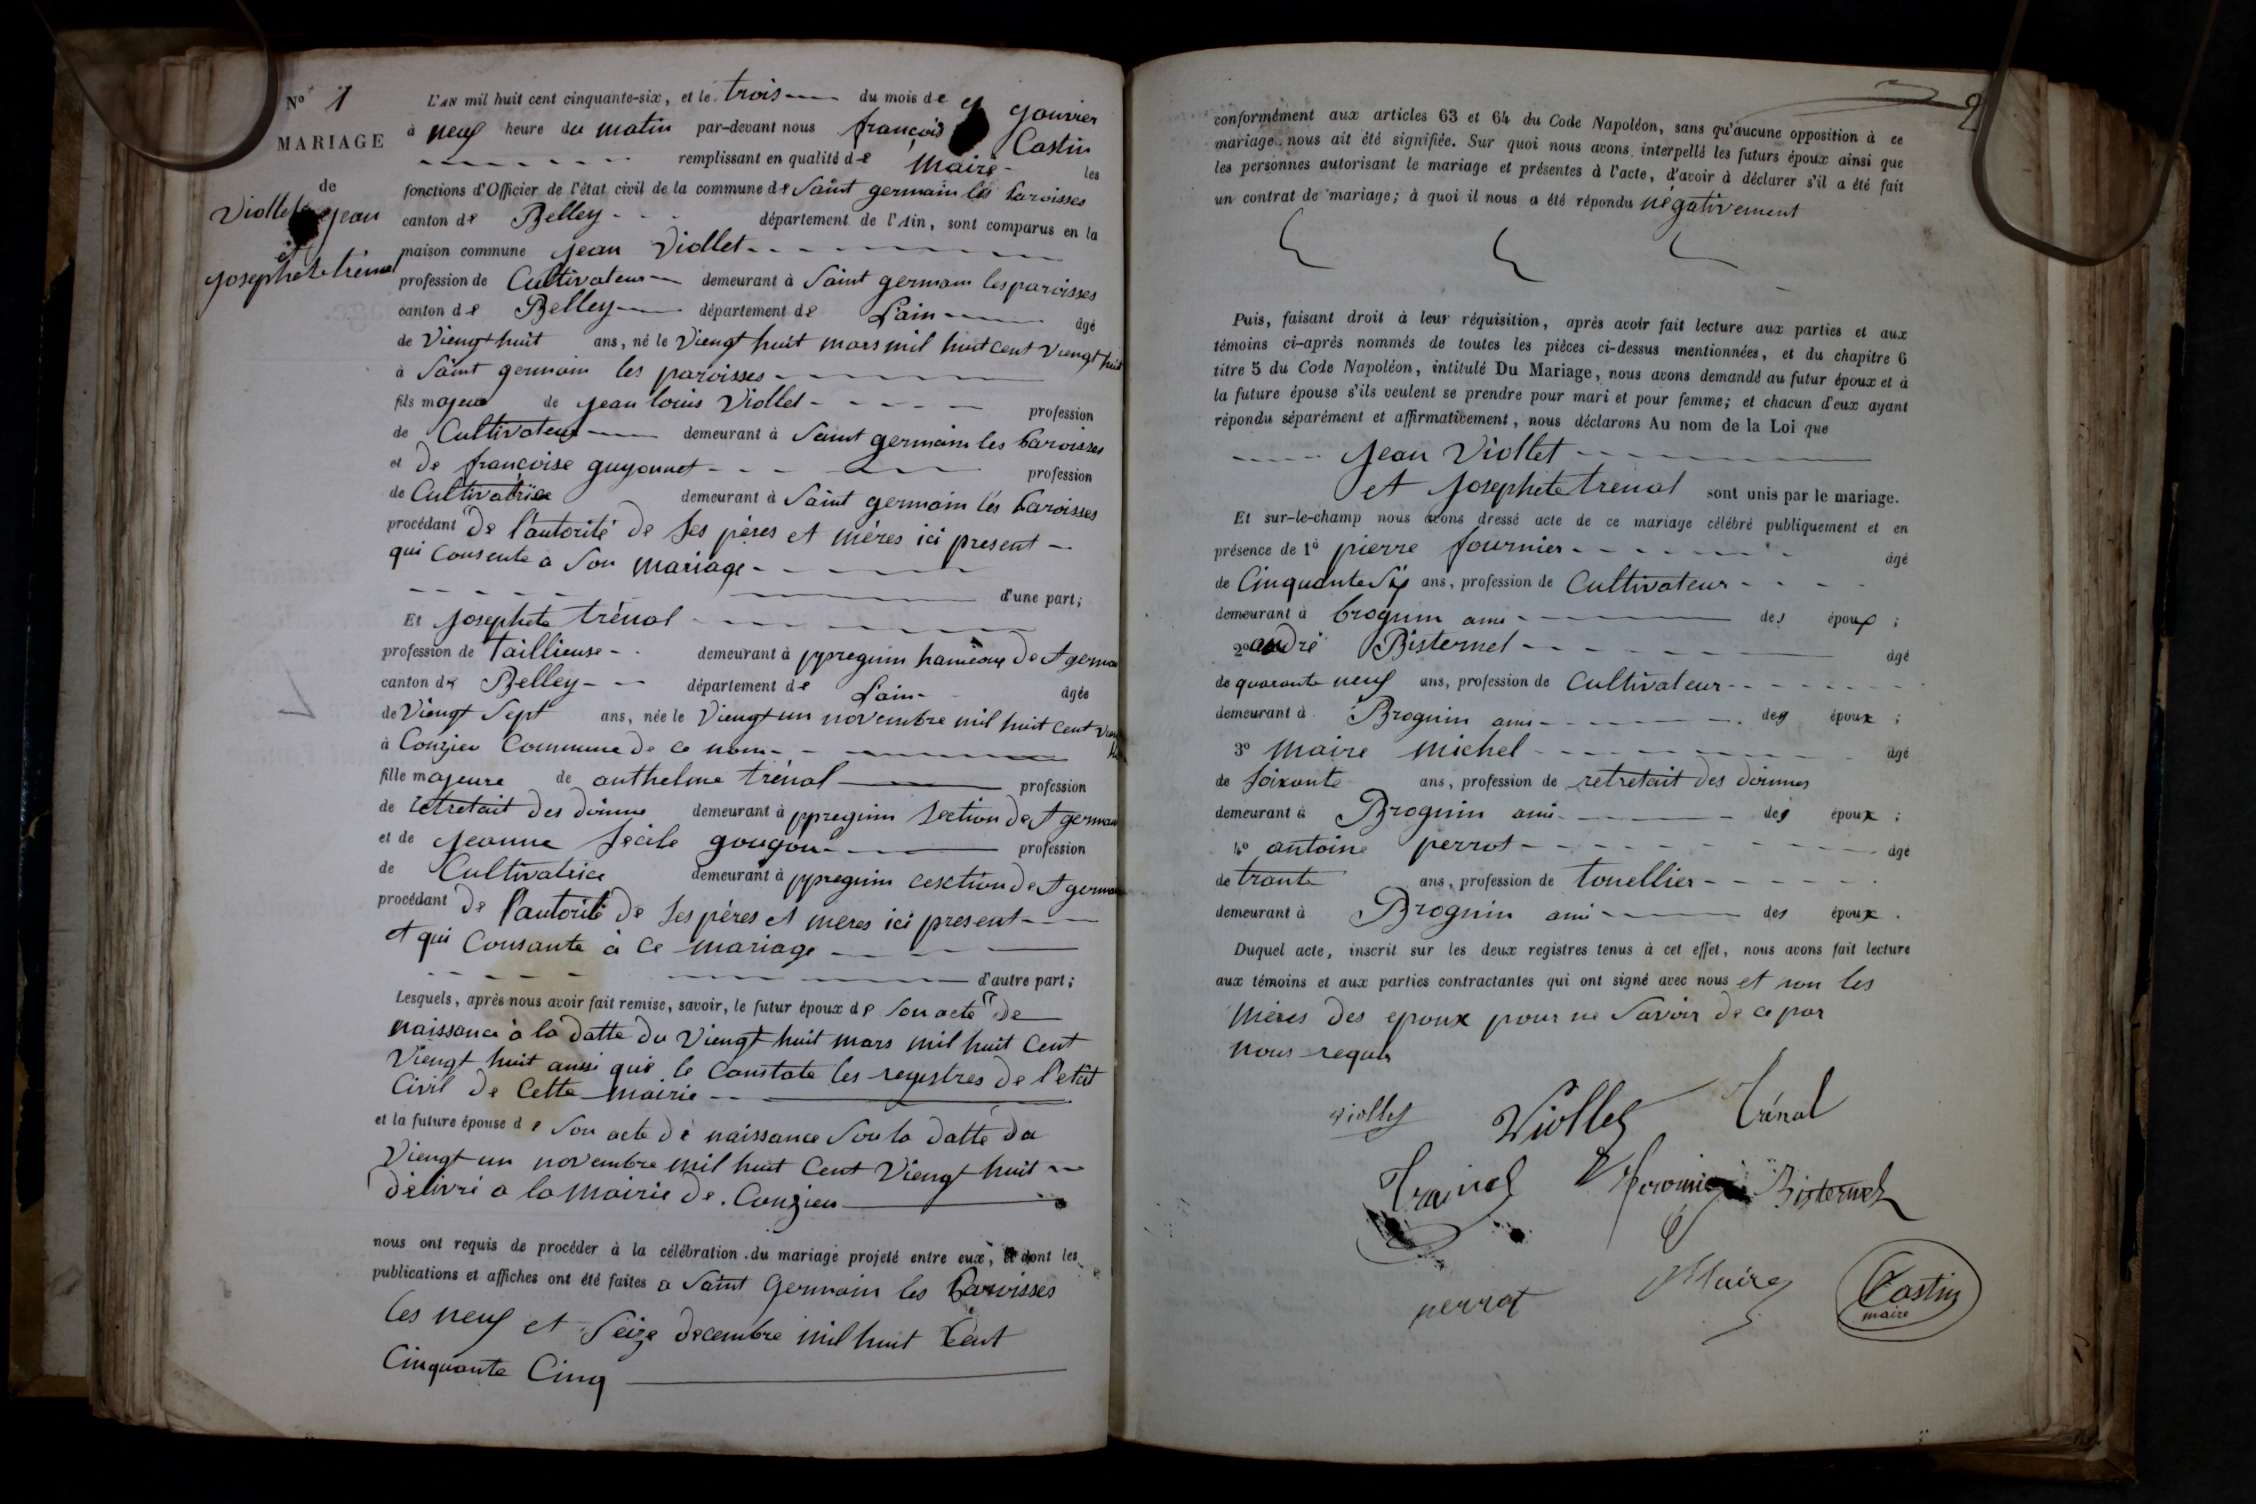 N° 1
MARIAGE
de
Viollet Jean
et
Josephete trénal
L'AN mil huit cent cinquante-six, et le trois du mois de Janvier
à neuf heure du matin par-devant nous françois Castin
remplissant en qualité de Maire les
fonctions d'Officier de l'état civil de la commune de Saint germain les Paroisses
canton de Belley département de l'Ain, sont comparus en la
maison commune Jean Viollet
profession de Cultivateur demeurant à Saint germain les paroisses
canton de Belley département de L'ain âgé
de Viengt huit ans, né le Viengt huit mars mil huit cent Viengt huit
à Saint germain les paroisses
fils majeur de Jean louis Viollet profession
de Cultivateur demeurant à Saint germain les Paroisses
et de françoise guyonnet profession
de Cultivatrice demeurant à Saint germain les Paroisses
procédant de l'autorité de Ses péres et méres ici present
qui Consente a Son mariage
d'une part;
Et Josephete trénal
profession de Taillieuse demeurant à ppregnin hameaux de St germain
canton de Belley département de L'ain âgée
de Viengt Sept ans, née le Viengt un novembre mil huit cent
à Conzieu Commune de ce nom
fille majeure de anthelme trénal profession
de retretait des doinne demeurant à ppregnin Section de St germain
et de Jeanne Sécile gougon profession
de Cultivatrice demeurant à ppregnin cesction de St germain
procédant de l'autorité de Ses péres et meres ici present
et qui Consante à ce mariage
d'autre part;
Lesquels, après nous avoir fait remise, savoir, le futur époux de Son acte de
naissance à la datte du Viengt huit mars mil huit Cent
Viengt huit ainsi que le Constate les registres de l'etat
Civil de Cette Mairie
et la future épouse de Son acte de naissance Sou la datte du
Viengt un novembre mil huit Cent Viengt huit
délivré a la Mairie de Conzieu
nous ont requis de procéder à la célébration du mariage projeté entre eux, et dont les
publications et affiches ont été faites a Saint Germain les Paroisses
les neuf et Seize decembre mil huit Cent
Cinquante Cinq
2
conformément aux articles 63 et 64 du Code Napoléon, sans qu'aucune opposition à ce
mariage nous ait été signifiée. Sur quoi nous avons interpellé les futurs époux ainsi que
les personnes autorisant le mariage et présentes à l'acte, d'avoir à déclarer s'il a été fait
un contrat de mariage; à quoi il nous a été répondu négativement
Puis, faisant droit à leur réquisition, après avoir fait lecture aux parties et aux
témoins ci-après nommés de toutes les pièces ci-dessus mentionnées, et du chapitre 6
titre 5 du Code Napoléon, intitulé Du Mariage, nous avons demandé au futur époux et à
la future épouse s'ils veulent se prendre pour mari et pour femme; et chacun d'eux ayant
répondu séparément et affirmativement, nous déclarons Au nom de la Loi que
Jean Viollet
et Josephete trenal sont unis par le mariage.
Et sur-le-champ nous avons dressé acte de ce mariage célébré publiquement et en
présence de 1° pierre fournier âgé
de Cinquante Six ans, profession de Cultivateur
demeurant à brognin ami des époux;
2° andré Bisternel âgé
de quarante neuf ans, profession de Cultivateur
demeurant à Brognin ami des époux;
3° Maire Michel âgé
de Soixante ans, profession de retretait des doinnes
demeurant à Brognin ami des époux;
4° antoine perrot âgé
de trante ans, profession de tonellier
demeurant à Brognin ami des époux.
Duquel acte, inscrit sur les deux registres tenus à cet effet, nous avons fait lecture
aux témoins et aux parties contractantes qui ont signé avec nous et non les
méres des epoux pour ne Savoir de ce par
nous requis
violley Violley Trénal
Bisternel
perrot Maire Castin
maire